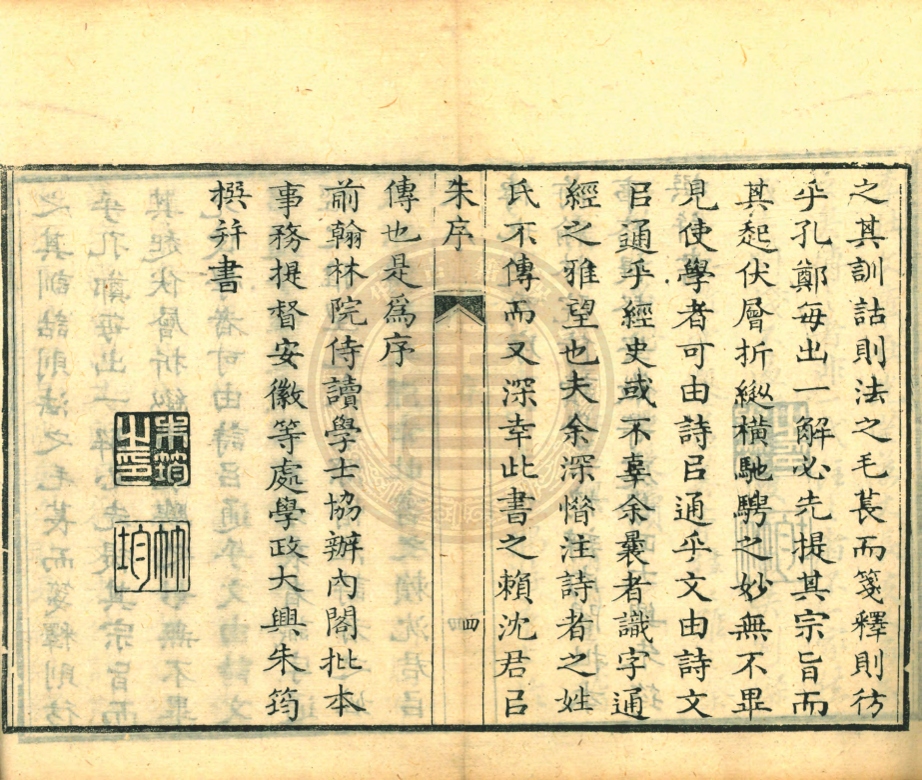 之其訓詁則法之毛萇而箋釋則彷
乎孔鄭每出一解必先提其宗旨而
其起伏層折縱橫馳騁之妙無不畢
見使學者可由詩㠯通乎文由詩文
㠯通乎經史或不辜余曩者識字通
經之雅望也夫余深憯注詩者之姓
氏不傳而又深幸此書之賴沈君㠯
朱序
四
傳也是爲序
前翰林院侍讀學士協辦內閣批本
事務提督安徽等處學政大興朱筠
撰并書
朱筠之印
竹均